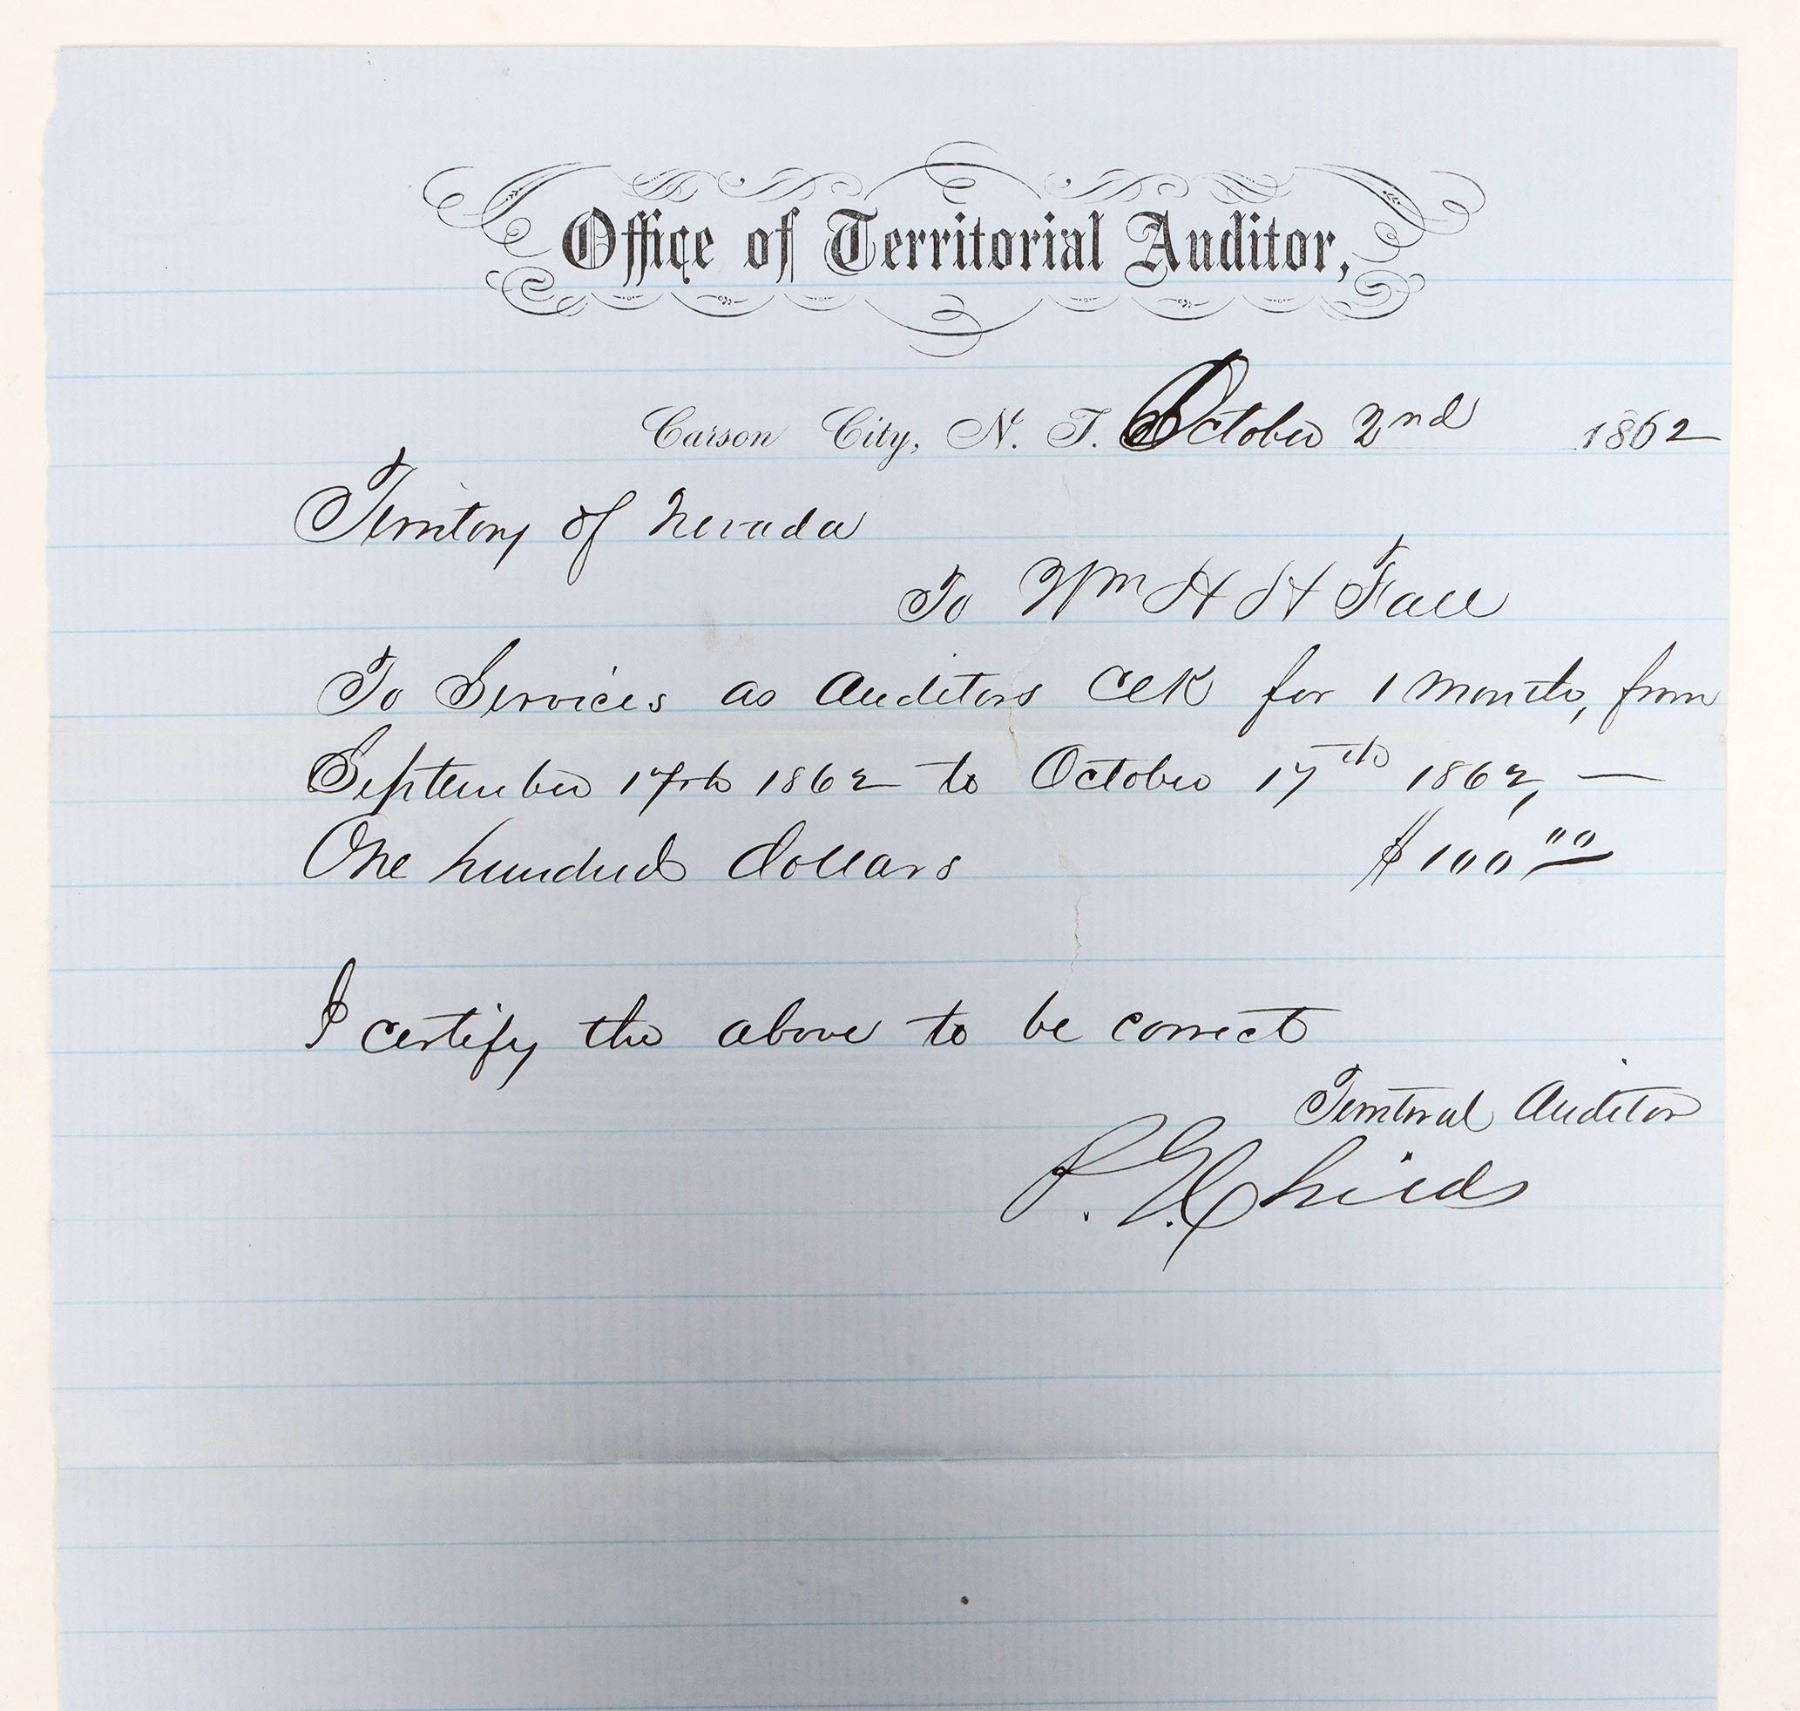 Office of Territorial Auditor,
Carson City, N. T. October 2nd 1862
Territory of Nevada
To Wm H H Fall
To Services as Auditors Clk for 1 Month, from
September 17th 1862 to October 17th 1862, —
One hundred dollars $100.00
I certify the above to be correct
Territorial Auditor
P. G. Childs